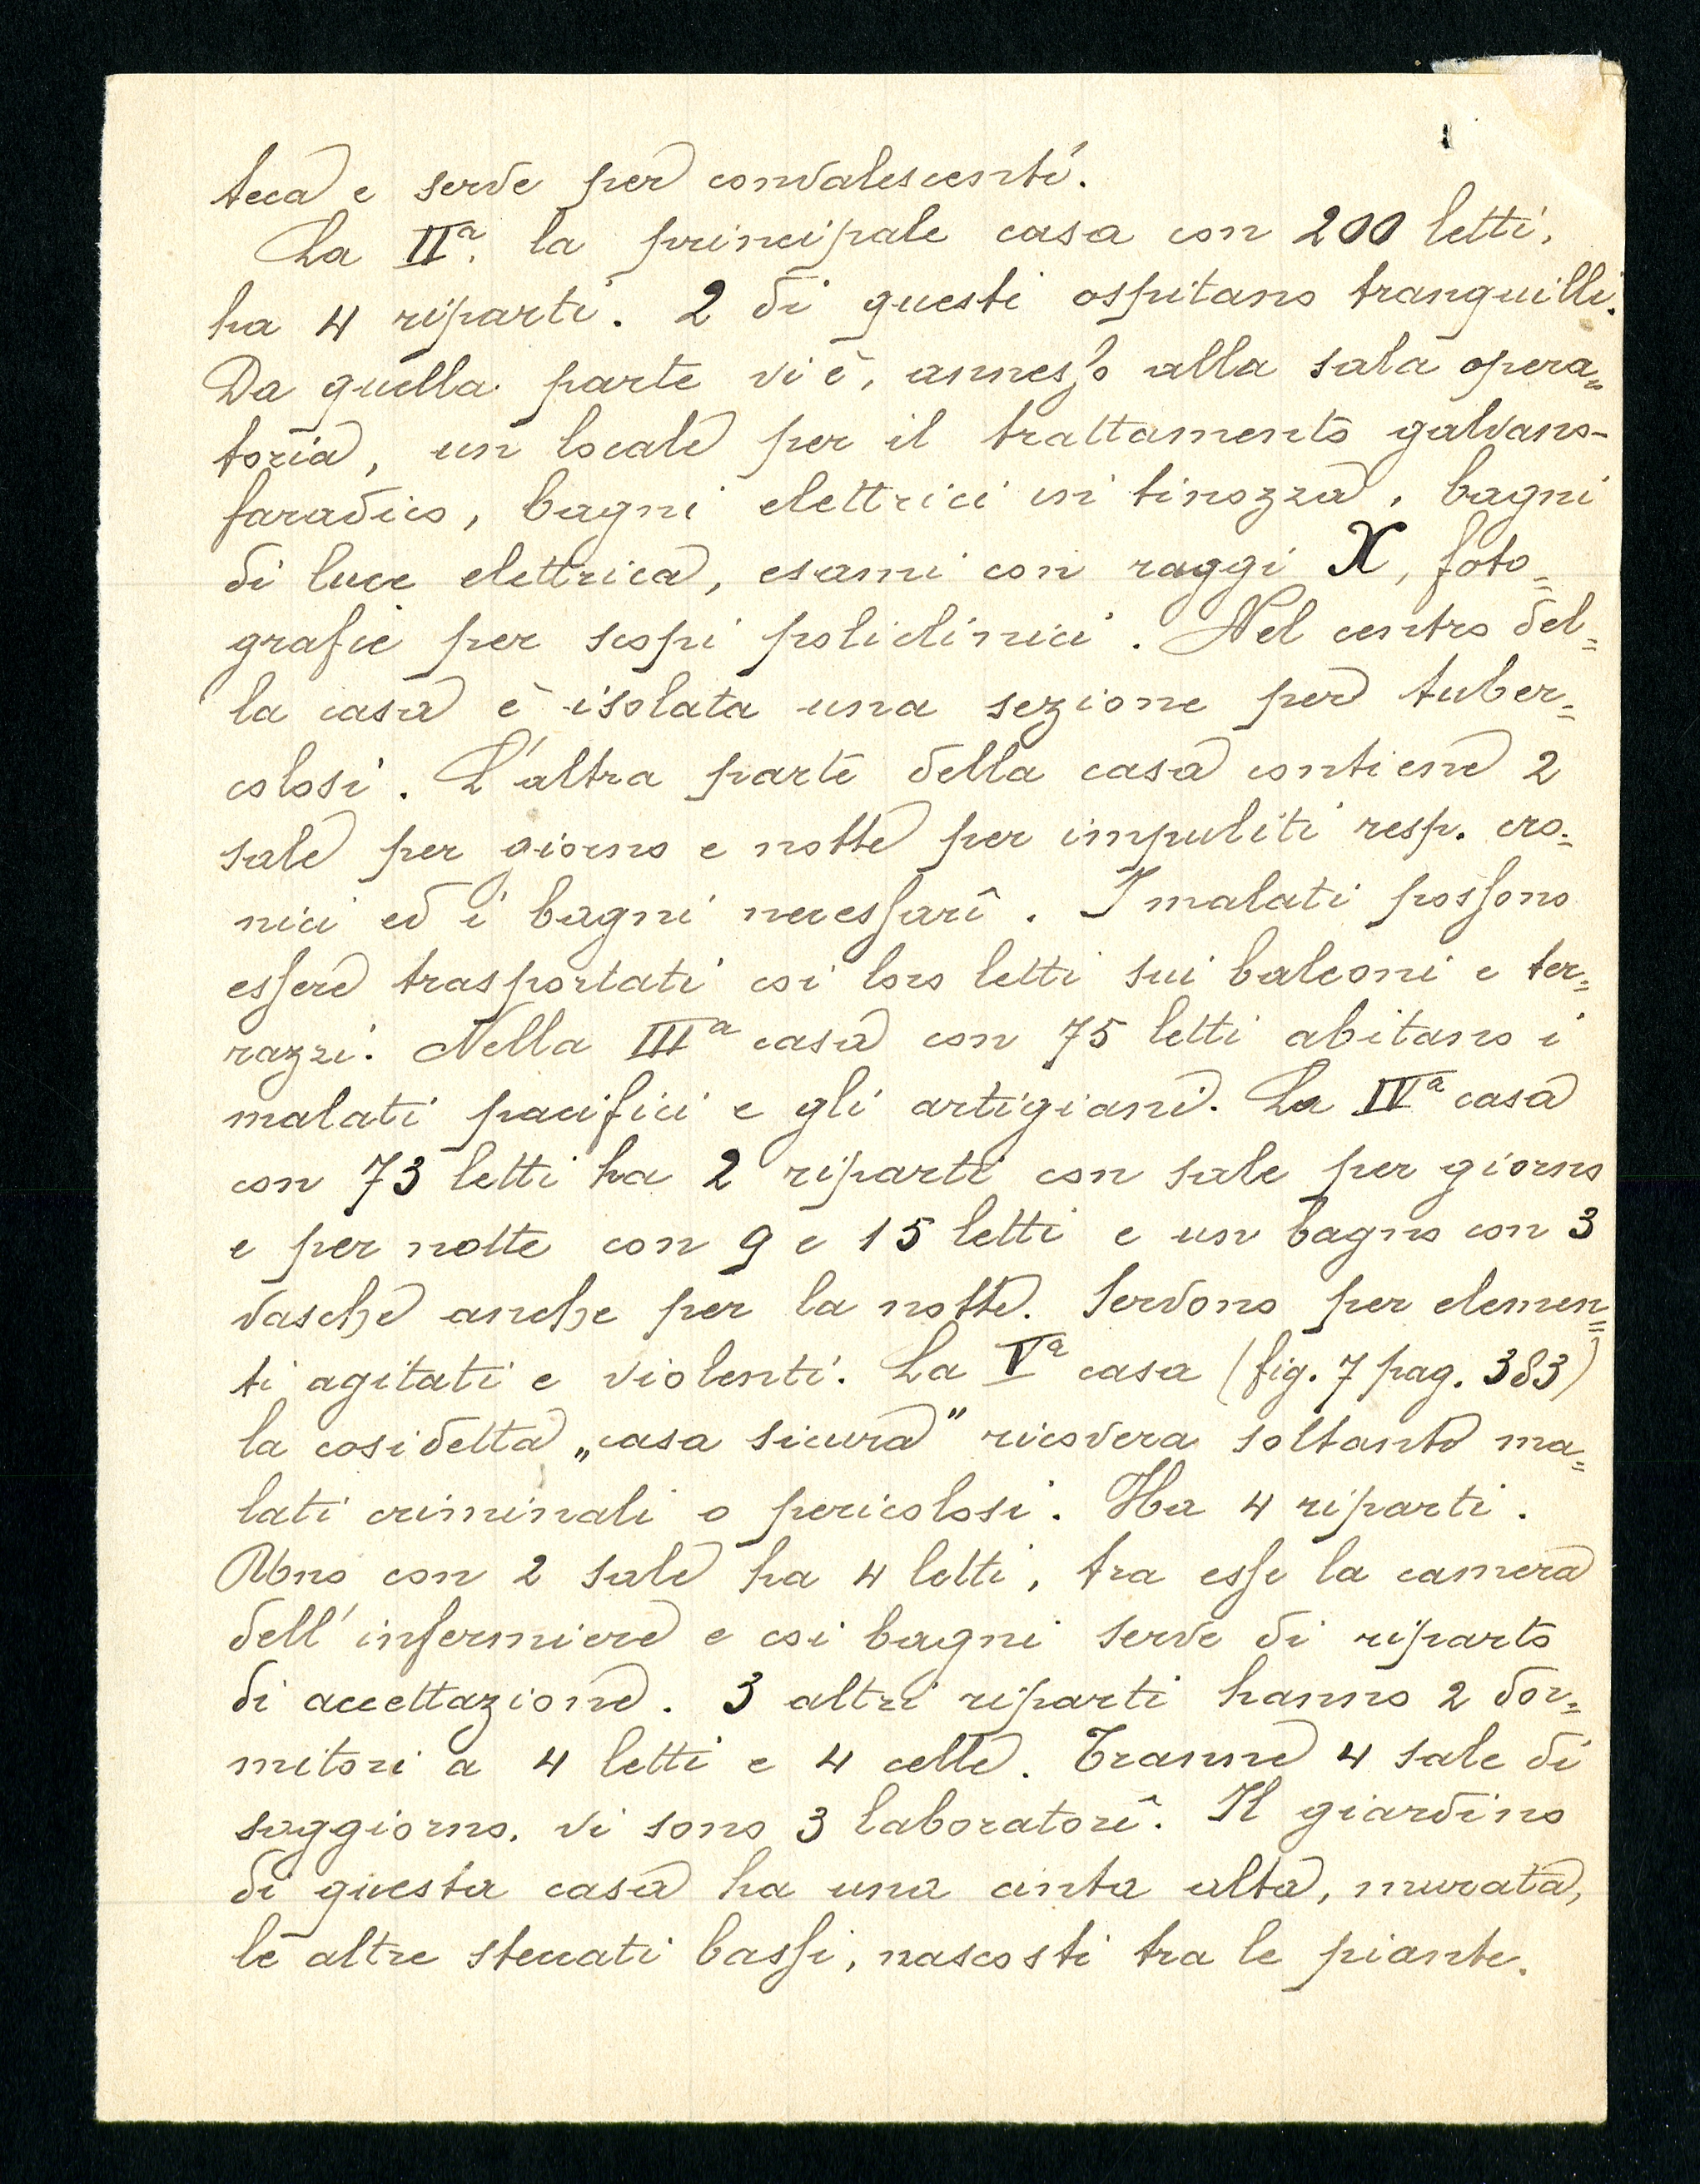 teca e serve per convalescenti.
La IIª. la principale casa con 200 letti,
ha 4 riparti. 2 di questi ospitano tranquilli.
Da quella parte vi è, annesso alla sala opera=
toria, un locale per il trattamento galvano-
faradico, bagni elettrici in tinozza, bagni
di luce elettrica, esami con raggi X, foto=
grafie per scopi policlinici. Nel centro del=
la casa è isolata una sezione per tuber=
colosi. L'altra parte della casa contiene 2
sale per giorno e notte per impuliti resp. cro=
nici ed i bagni necessarî. I malati possono
essere trasportati coi loro letti sui balconi e ter=
razzi. Nella IIIª casa con 75 letti abitano i
malati pacifici e gli artigiani. La IVª casa
con 73 letti ha 2 riparti con sale per giorno
e per notte con 9 e 15 letti e un bagno con 3
vasche anche per la notte. Servono per elemen=
ti agitati e violenti. La Vª casa (fig. 7 pag. 383)
la cosidetta „casa sicura" ricovera soltanto ma=
lati criminali o pericolosi. Ha 4 riparti.
Uno con 2 sale ha 4 letti, tra esse la camera
dell'infermiere e coi bagni serve di riparto
di accettazione. 3 altri riparti hanno 2 dor=
mitori a 4 letti e 4 celle. Tranne 4 sale di
soggiorno, vi sono 3 laboratorî. Il giardino
di questa casa ha una cinta alta, murata,
le altre steccati bassi, nascosti tra le piante.